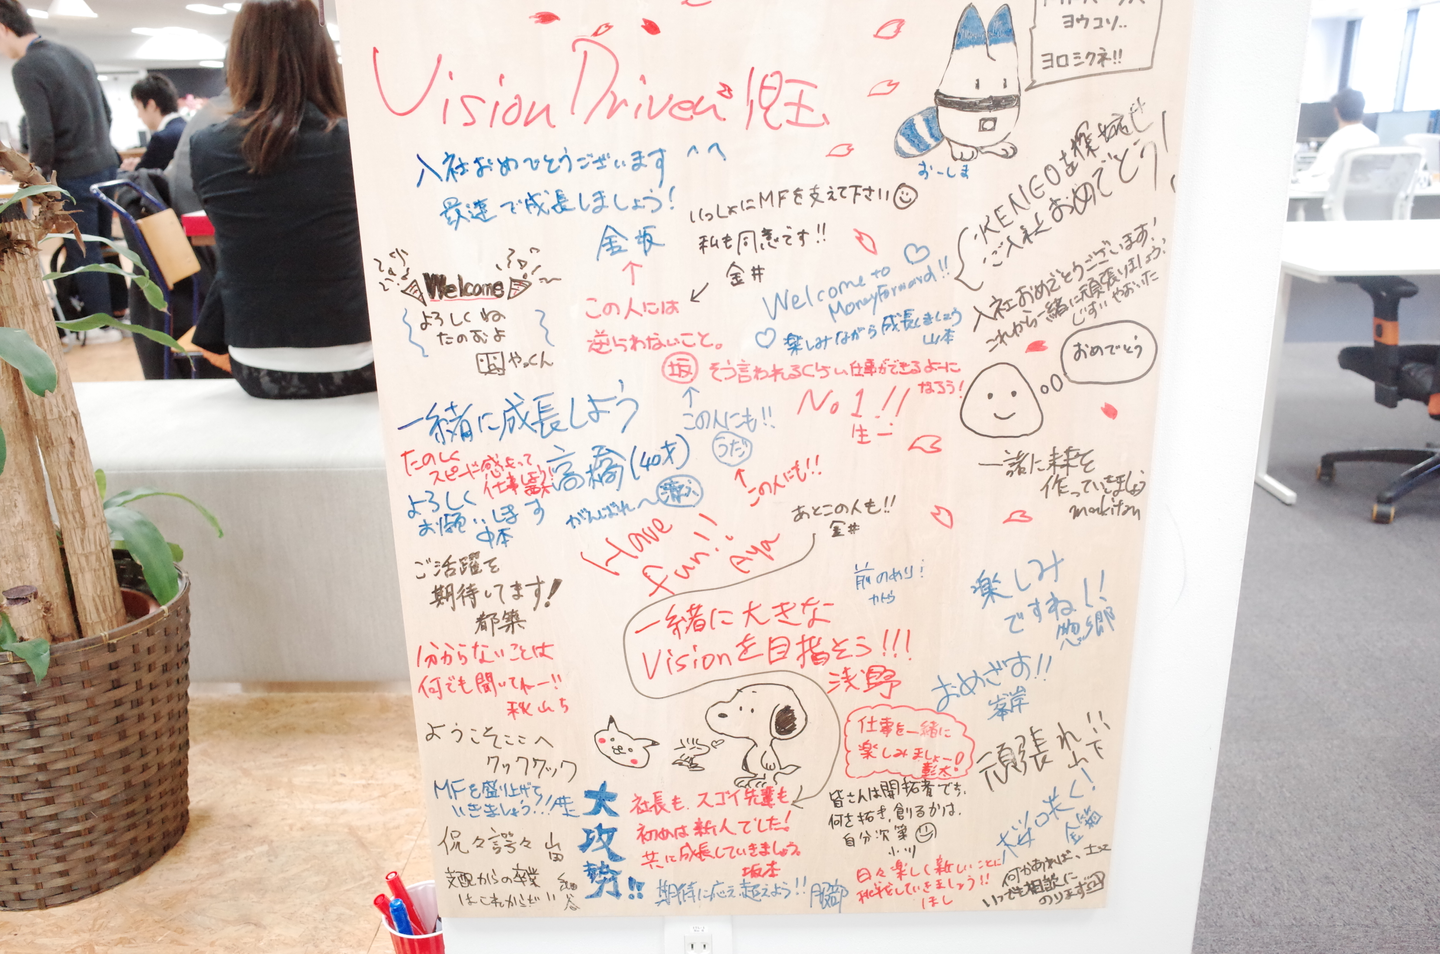 Vision Driven 児玉
ヨウコソ..
ヨロシクネ!!
おーしま
入社おめでとうございます ^^
最速で成長しましょう!
金坂
いっしょにMFを支えて下さい
私も同意です!!
金井
KENGOを探せ
ご入社おめでとう!
Welcome
よろしくね
たのむよ
やっくん
この人には
逆らわないこと。
坂
Welcome to
MoneyForward!!
楽しみながら成長しましょう
山本
入社おめでとうございます!
これから一緒に頑張りましょう!
そう言われるくらい仕事ができるよーに
なろう!
おめでとう
一緒に成長しよう
高橋(40才)
この人にも!!
うだ
No1!!
生一
たのしく
スピード感もって
仕事しよう!
よろしく
お願いします
中本
がんばれ〜
この人にも!!
あとこの人も!!
金井
一緒に未来を
作っていきましょう
makitan
Have
fun!!
Aya
ご活躍を
期待してます!
都築
一緒に大きな
Visionを目指そう!!!
浅野
楽しみ
ですね!!
惣郷
おめざす!!
峯岸
1分からないことは
何でも聞いてねー!!
秋山ち
ようこそここへ
クックックック
仕事を一緒に
楽しみましょー!
頑張れ!!
山下
MFを盛り上げて
いきましょう!!
侃々諤々
山田
支配からの卒業
はこれからだ!!
大攻勢!!
社長も、スゴイ先輩も
初めは新人でした!
共に成長していきましょう。
坂本
期待に応え越えよう!!
服部
皆さんは開拓者です。
何を拓き、創るかは、
自分次第
小川
日々楽しく新しいことに
挑戦していきましょう!!
ほし
桜咲く!
何かあれば、
いつでも相談に
のります